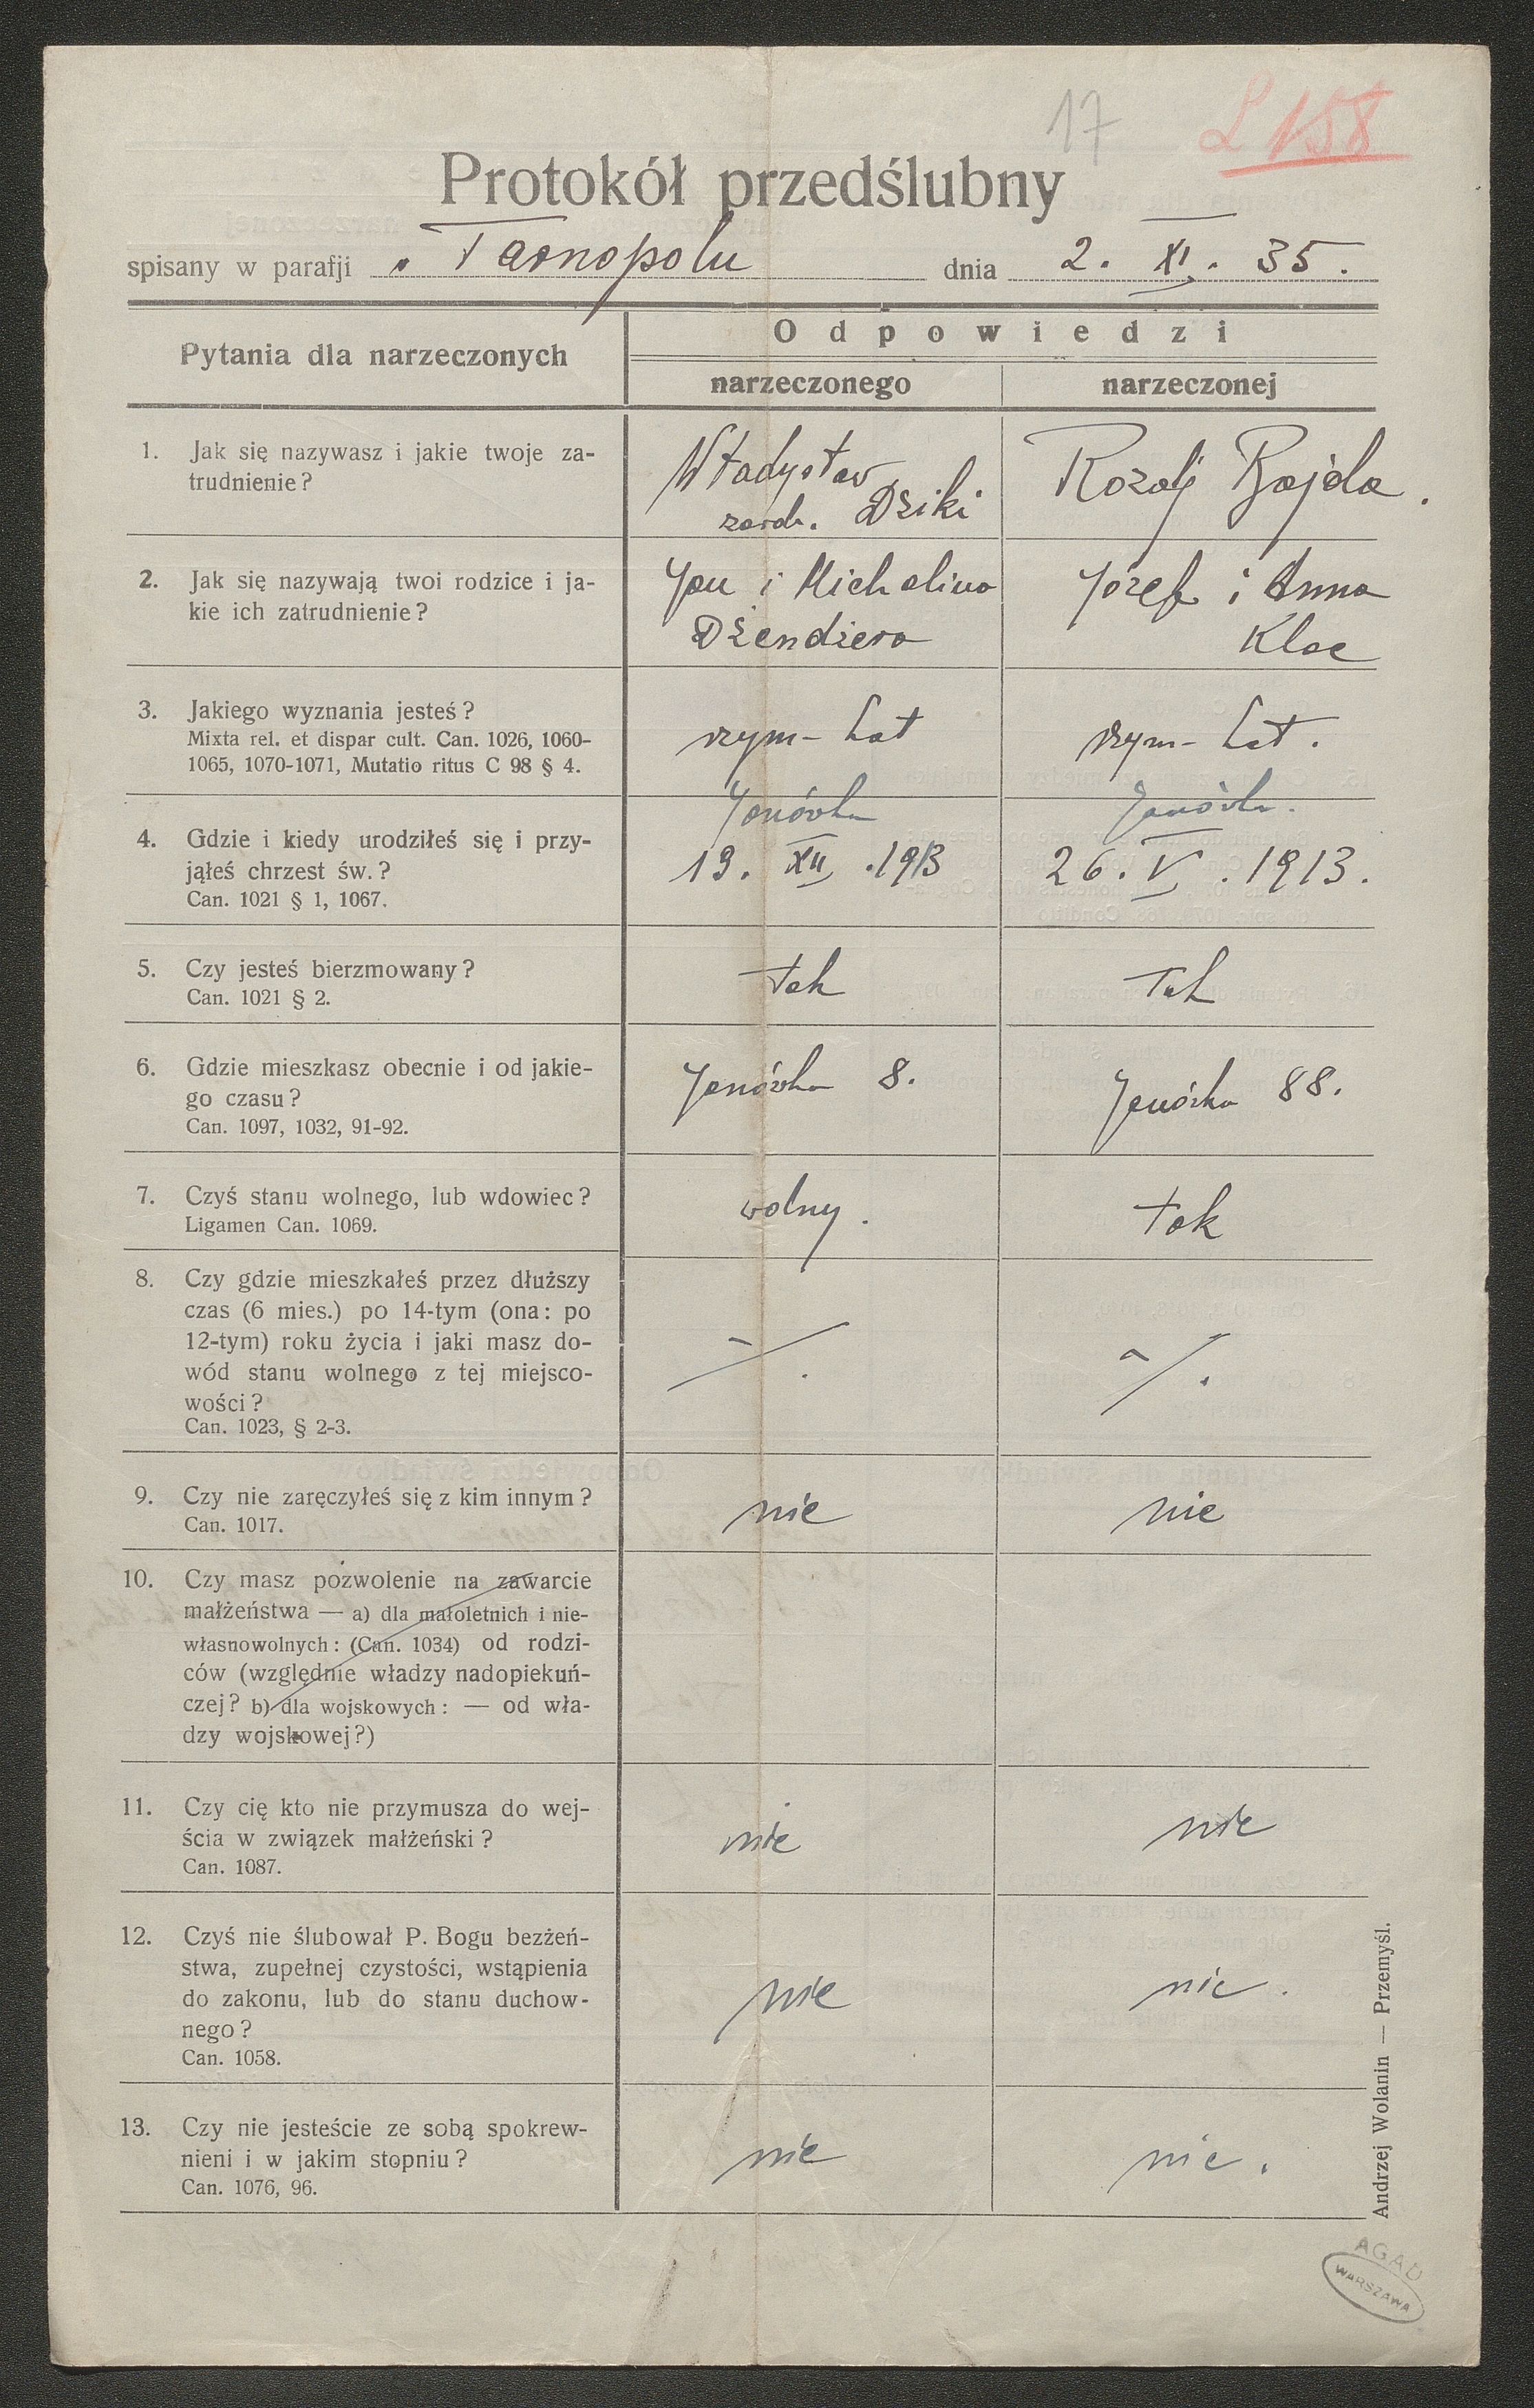 17 L 158
Protokół przedślubny
spisany w parafji w Tarnopolu dnia 2. XI. 35.
Pytania dla narzeczonych
Odpowiedzi
narzeczonego narzeczonej
1. Jak się nazywasz i jakie twoje za-
trudnienie?
Władysław
zarob. Dziki
Rozalj Bajda.
2. Jak się nazywają twoi rodzice i ja-
kie ich zatrudnienie?
Jan i Michalina
Dżendżera
Józef i Anna
Kloc
3. Jakiego wyznania jesteś?
Mixta rel. et dispar cult. Can. 1026, 1060-
1065, 1070-1071, Mutatio ritus C 98 § 4.
rzym-Łat
rzym-Łat.
4. Gdzie i kiedy urodziłeś się i przy-
jąłeś chrzest św.?
Can. 1021 § 1, 1067.
Janówka
19. XII. 1913
Janówka.
26. V. 1913.
5. Czy jesteś bierzmowany?
Can. 1021 § 2.
tak
Tak
6. Gdzie mieszkasz obecnie i od jakie-
go czasu?
Can. 1097, 1032, 91-92.
Janówka 8.
Janówka 88.
7. Czyś stanu wolnego, lub wdowiec?
Ligamen Can. 1069.
wolny.
tak
8. Czy gdzie mieszkałeś przez dłuższy
czas (6 mies.) po 14-tym (ona: po
12-tym) roku życia i jaki masz do-
wód stanu wolnego z tej miejsco-
wości?
Can. 1023, § 2-3.
9. Czy nie zaręczyłeś się z kim innym?
Can. 1017.
nie
nie
10. Czy masz pozwolenie na zawarcie
małżeństwa — a) dla małoletnich i nie-
własnowolnych: (Can. 1034) od rodzi-
ców (względnie władzy nadopiekuń-
czej? b) dla wojskowych: — od wła-
dzy wojskowej?)
11. Czy cię kto nie przymusza do wej-
ścia w związek małżeński?
Can. 1087.
nie
nie
12. Czyś nie ślubował P. Bogu bezżeń-
stwa, zupełnej czystości, wstąpienia
do zakonu, lub do stanu duchow-
nego?
Can. 1058.
nie
nie.
13. Czy nie jesteście ze sobą spokrew-
nieni i w jakim stopniu?
Can. 1076, 96.
nie
nie.
Andrzej Wolanin — Przemyśl.
AGAD
WARSZAWA